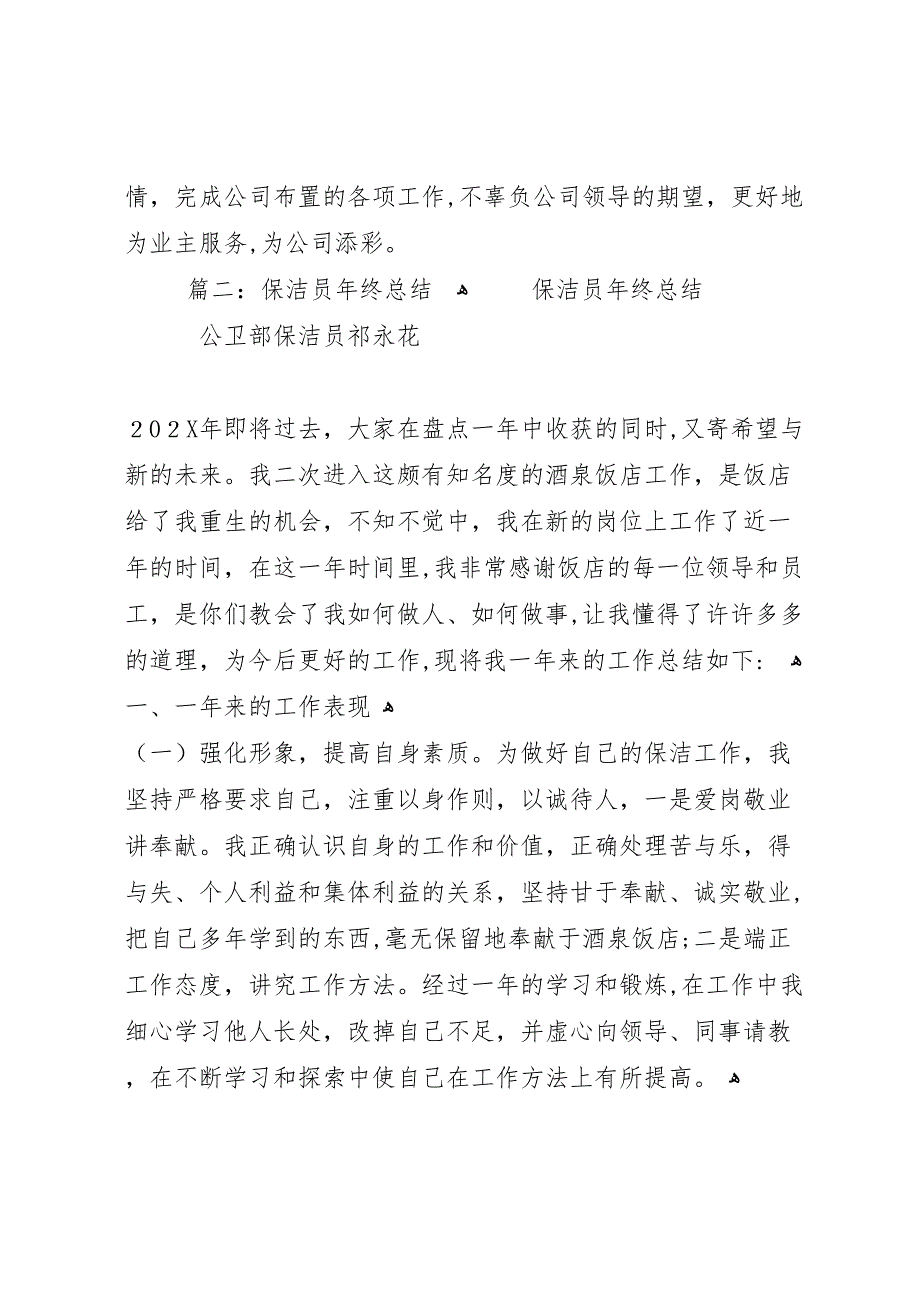 情，完成公司布置的各项工作,不辜负公司领导的期望，更好地
为业主服务,为公司添彩。
篇二：保洁员年终总结 ﻫ 保洁员年终总结
公卫部保洁员祁永花
２０２X年即将过去，大家在盘点一年中收获的同时,又寄希望与
新的未来。我二次进入这颇有知名度的酒泉饭店工作，是饭店
给了我重生的机会，不知不觉中，我在新的岗位上工作了近一
年的时间，在这一年时间里,我非常感谢饭店的每一位领导和员
工，是你们教会了我如何做人、如何做事,让我懂得了许许多多
的道理，为今后更好的工作,现将我一年来的工作总结如下: ﻫ
一、一年来的工作表现ﻫ
（一）强化形象，提高自身素质。为做好自己的保洁工作，我
坚持严格要求自己，注重以身作则，以诚待人，一是爱岗敬业
讲奉献。我正确认识自身的工作和价值，正确处理苦与乐，得
与失、个人利益和集体利益的关系，坚持甘于奉献、诚实敬业,
把自己多年学到的东西,毫无保留地奉献于酒泉饭店;二是端正
工作态度，讲究工作方法。经过一年的学习和锻炼,在工作中我
细心学习他人长处，改掉自己不足，并虚心向领导、同事请教
，在不断学习和探索中使自己在工作方法上有所提高。 ﻫ